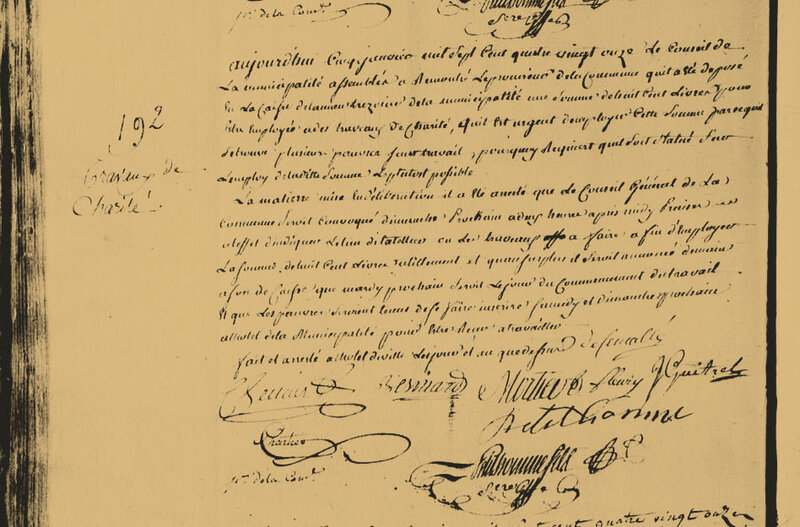 pr. de la Com.e
Secre. Greffier
192
Travaux de
Charité.
aujourdhui Cinq janvier mil Sept Cent quatre vingt onze Le Conseil de
La municipalité assemblée a Remontré Le procureur dela Commune quil a Eté deposé
En La Caisse du tresorier dela municipalité une Somme dehuit Cent Livres pour
Etre Employée ades travaux de Charité, quil Est urgent demployer Cette Somme parcequil
Setrouve plusieurs pauvres Sans travail, pourquoy Requiert quil Soit Statué Sur
Lemploy de laditte Somme Leplutost possible
La matiere mise En déliberation il a Eté areté que Le Conseil Général de La
Commune Seroit Convoqué dimanche Prochain adeux heures après midy
aleffet dindiquer Lelieu delattellier ou Les travaux a faire a fin d'Employer
La Somme dehuit Cent Livres utillement et quau Surplus il Seroit annoncé demain
a Son de Caisse que mardy prochain Seroit Lejour du Commencement dutravail
Et que Les pauvres Seroient tenus de Se faire inscrire Samedy et dimanche prochain
alhotel dela Municipalité pour Etre Reçus atravailler
fait et areté alhotel deville Lesjour et an que dessus
Besnard Mortier Fleury J Guitrel
Petit homme
Chartier
Prudhomme fils
pr. de la Com.e
Secre. Greffe
Cent quatre vingt onze